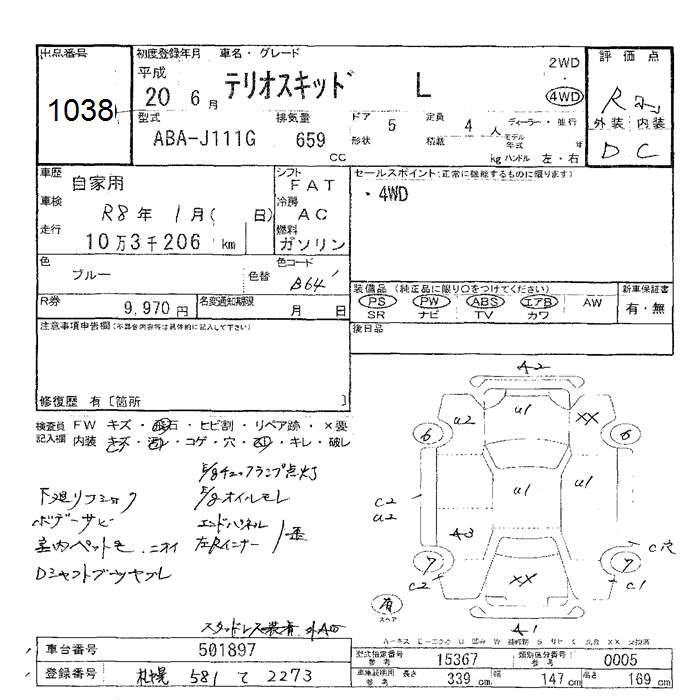 出品番号
1038
初度登録年月 車名・グレード
平成
20 6月 テリオスキッド L
2WD
・
4WD
評価点
R
外装 内装
D C
型式 排気量
ABA-J111G 659 CC
ドア 5 定員 4 人 ディーラー・並行
形状 積載 kg モデル年式 年
ハンドル 左・右
車歴 自家用
車検 R8年 1月( 日)
走行 10万3千206 km
シフト FAT
冷房 AC
燃料 ガソリン
セールスポイント(正常に機能するものに限ります)
・4WD
色 ブルー 色替
色コード B64
R券 9,970円
名変通知期限 月 日
装備品 (純正品に限り○をつけてください)
PS PW ABS エアB AW
SR ナビ TV カワ
新車保証書
有・無
後日品
注意事項申告欄(不具合内容等は具体的に記入して下さい)
修復歴 有〔箇所 〕
検査員記入欄
FW キズ・飛石・ヒビ割・リペア跡・×要
内装 キズ・汚レ・コゲ・穴・凹・キレ・破レ
E/gチェックランプ点灯
下廻リフショク E/gオイルモレ
ボデーサビ エンドパネル
室内ペット毛.ニオイ 左Rインナー
Dシャフトブーツヤブレ
スタッドレス装着
A2
u2 u1 XX
6 6
u1 u1
C2
u2
A3
C穴
7 7
C2 XX C1
有
スペア
A1
車台番号 501897
登録番号 札幌 581 て 2273
型式指定番号 参考 15367
類別区分番号 参考 0005
車検証明用 参考 長さ 339 cm 幅 147 cm 高さ 169 cm